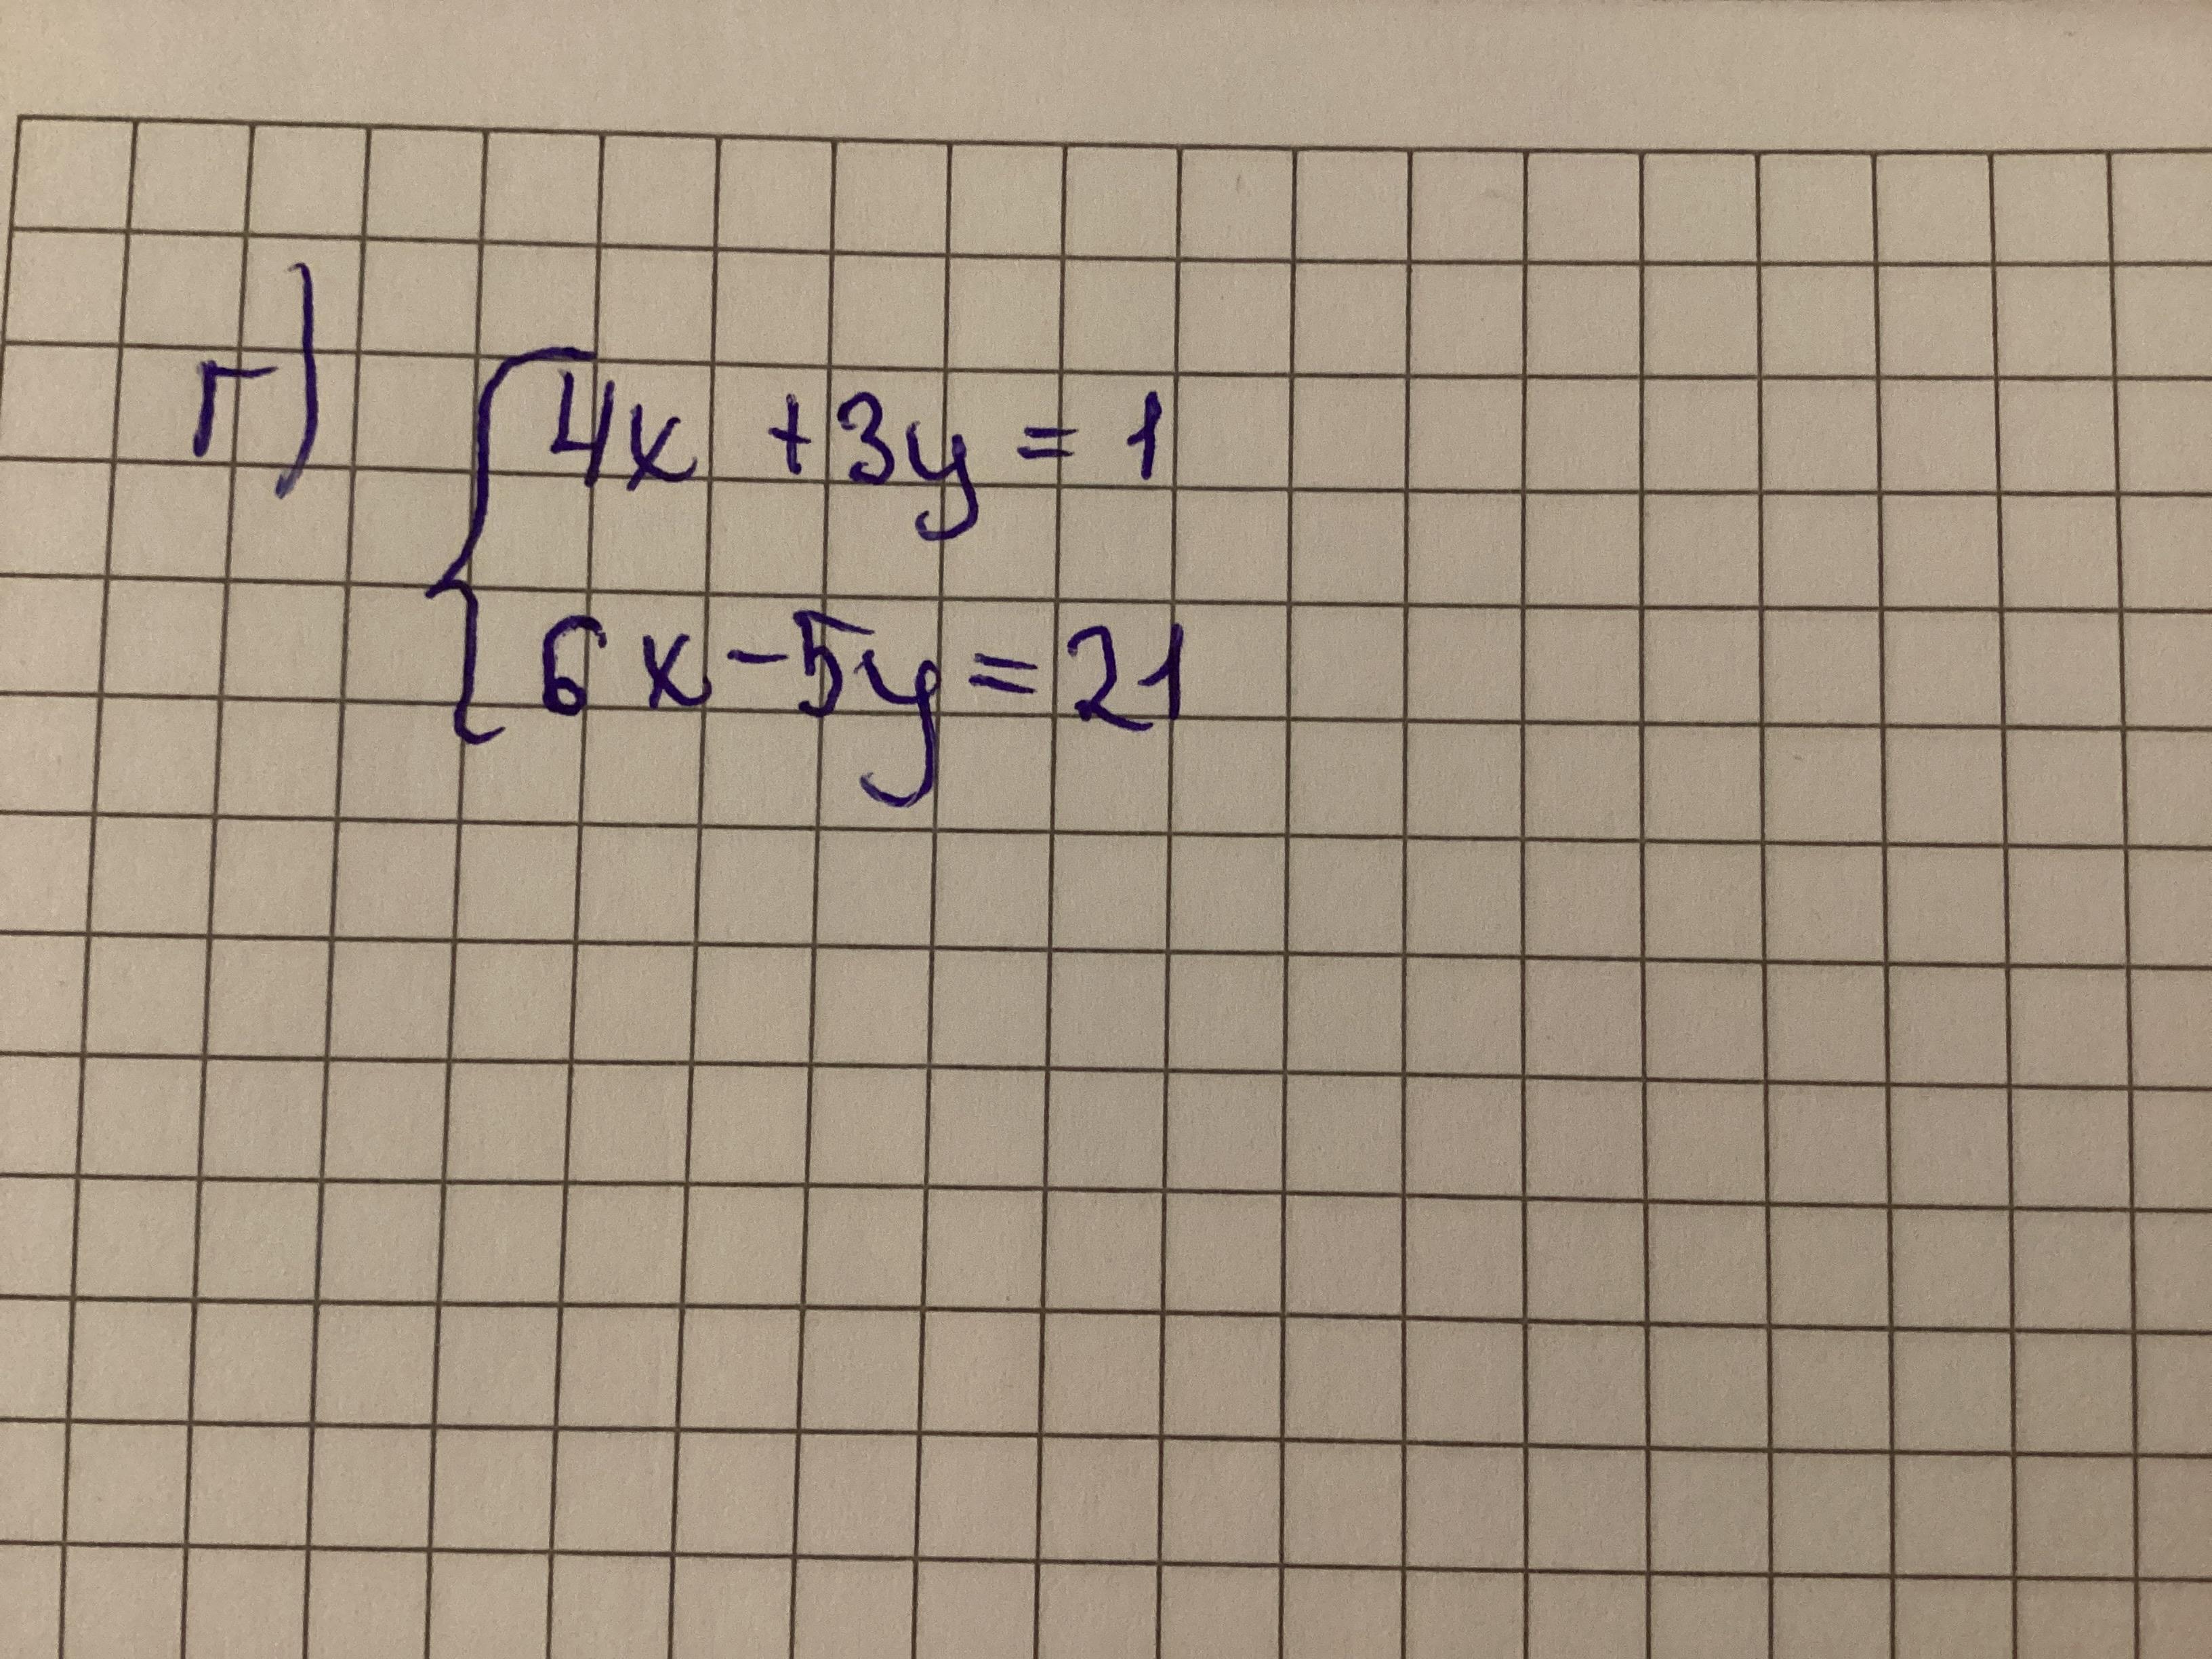 г) 4x + 3y = 1
6x - 5y = 21